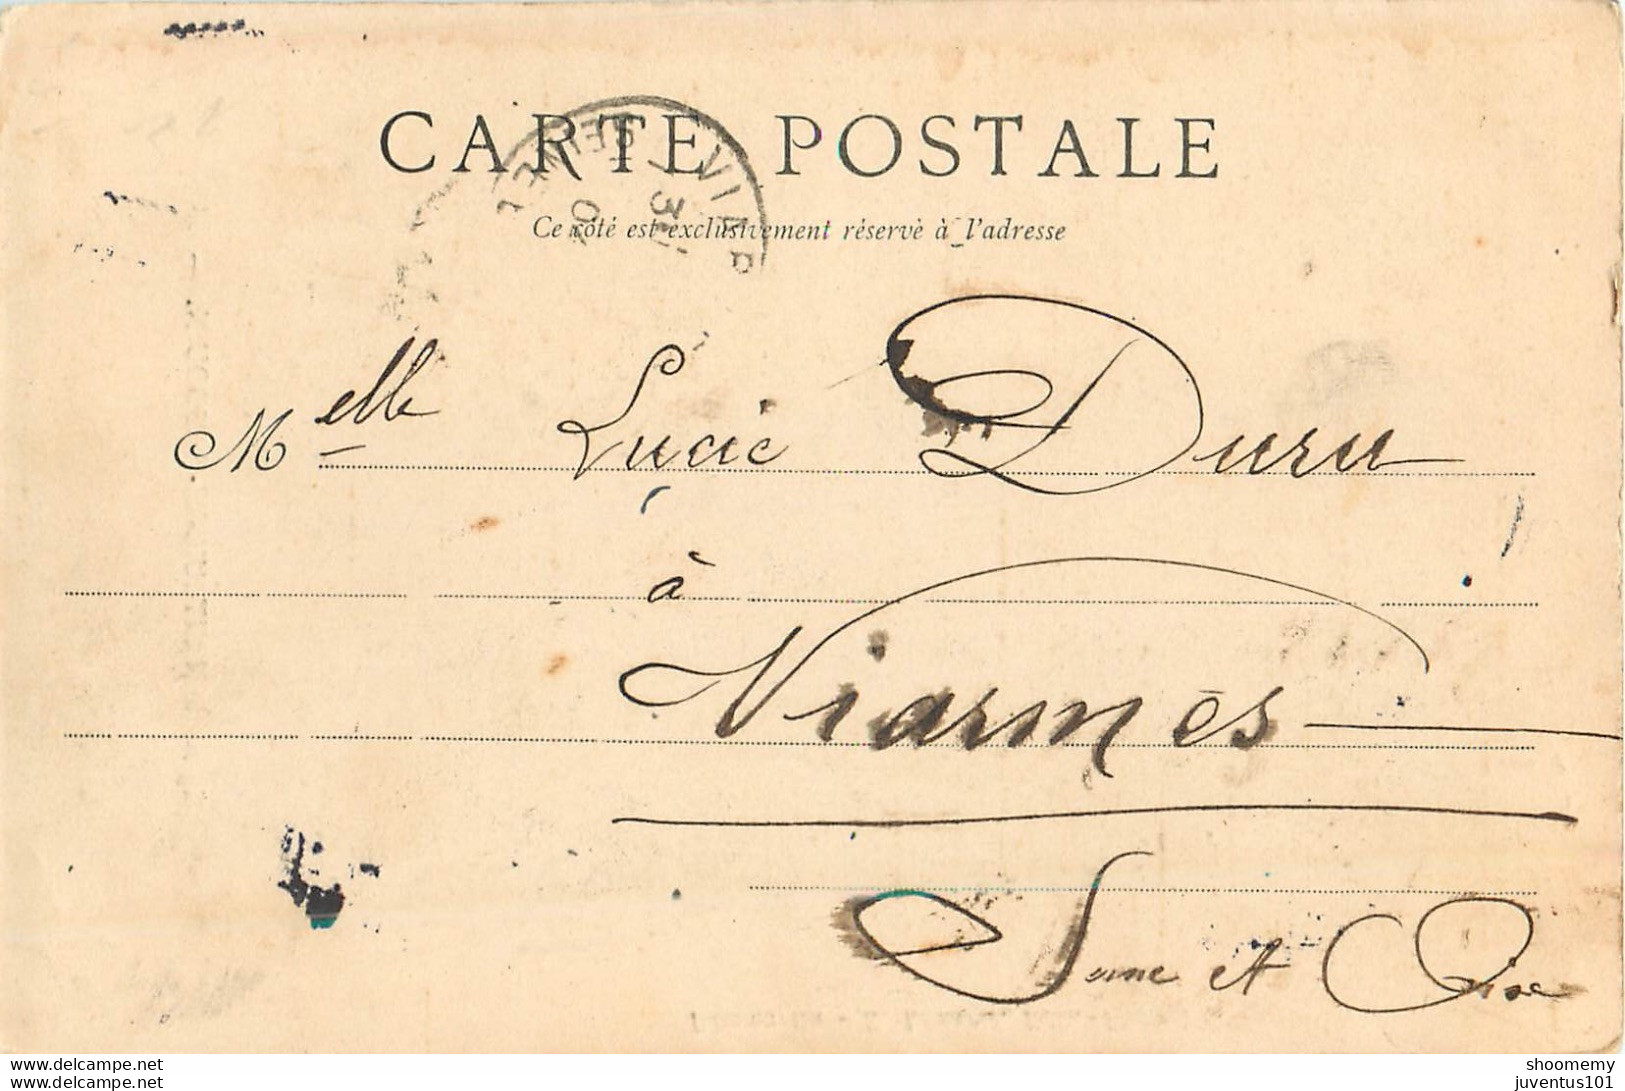 CARTE POSTALE
Ce côté est exclusivement réservé à l'adresse
Melle Lucie Duru
à
Viarmes
Seine et Oise
www.delcampe.net
www.delcampe.net
shoomemy
juventus101